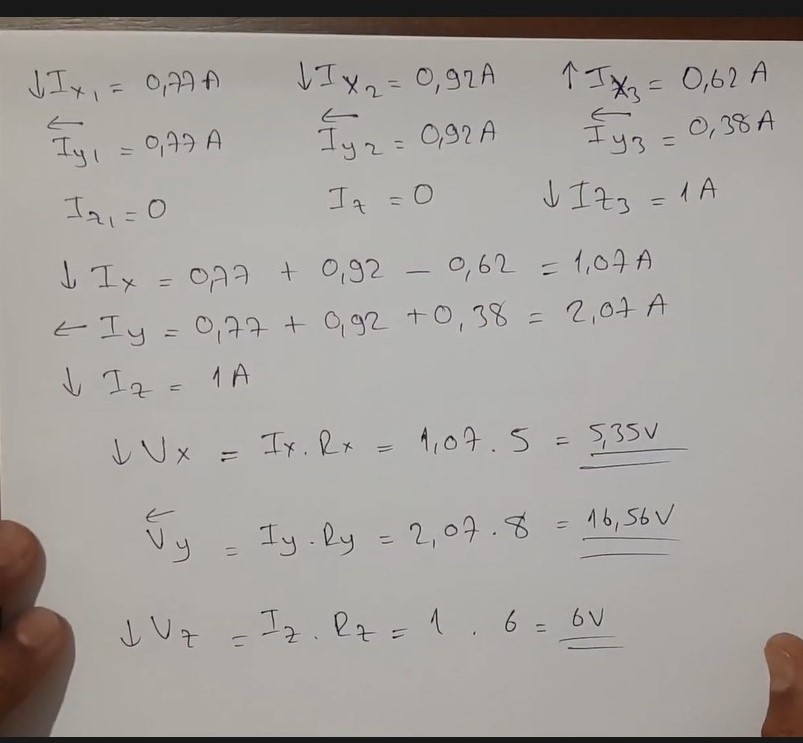 ↓Ix₁ = 0,77A ↓Ix₂ = 0,92A ↑Ix₃ = 0,62A
←Iy₁ = 0,77A ←Iy₂ = 0,92A ←Iy₃ = 0,38A
Iz₁ = 0 Iz = 0 ↓Iz₃ = 1A
↓ Ix = 0,77 + 0,92 - 0,62 = 1,07A
← Iy = 0,77 + 0,92 + 0,38 = 2,07A
↓ Iz = 1A
↓Ux = Ix.Rx = 1,07.5 = 5,35V
←Vy = Iy.Ry = 2,07.8 = 16,56V
↓Uz = Iz.Rz = 1.6 = 6V